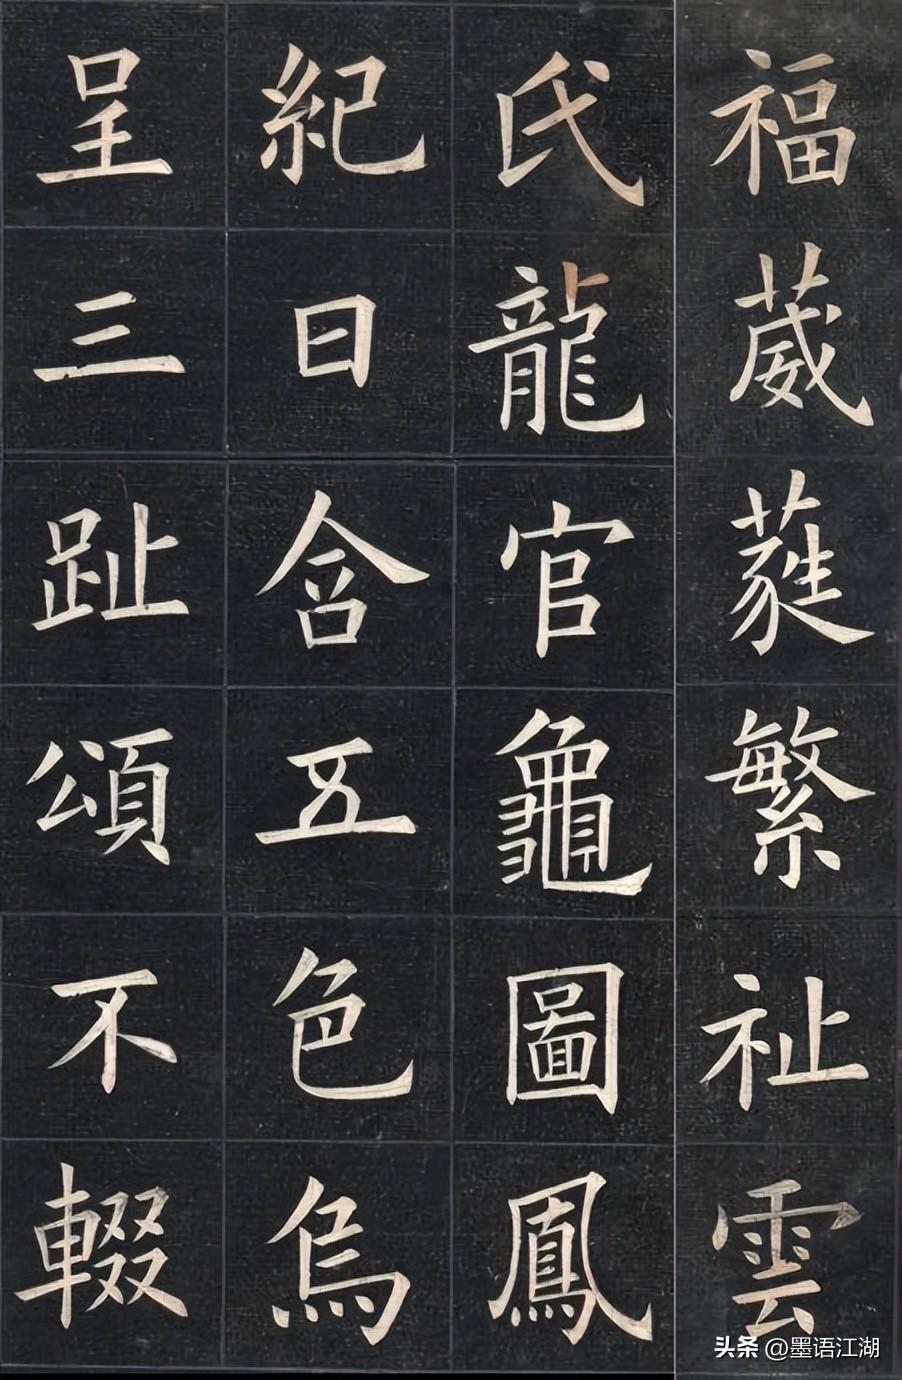 福葳蕤繁祉雲
氏龍官龜圖鳳
紀日含五色烏
呈三趾頌不輟
头条 @墨语江湖